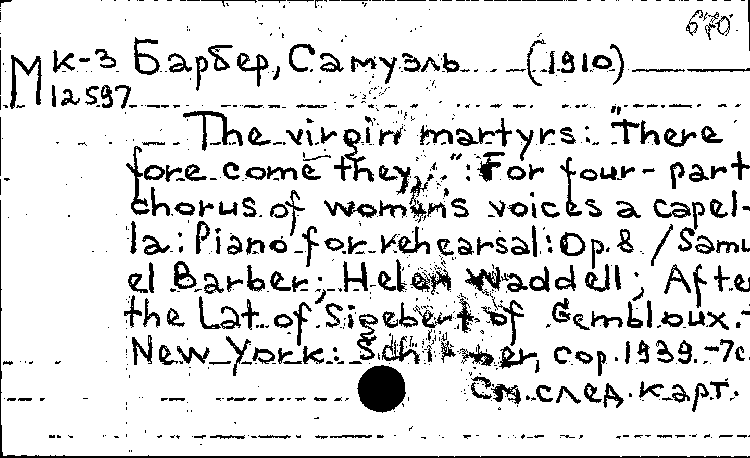 670
М к-3 Барбер, Самуэль (1910)
12597
The virgin martyrs: "There
fore come they...": For four-part
chorus of women's voices a capel-
la: Piano for rehearsal: Op. 8 / Samu
el Barber; Helen Waddell; Afte
the Lat. of Sigebert of Gembloux.-
New York: cop. 1939.-7c.
См. след. карт.